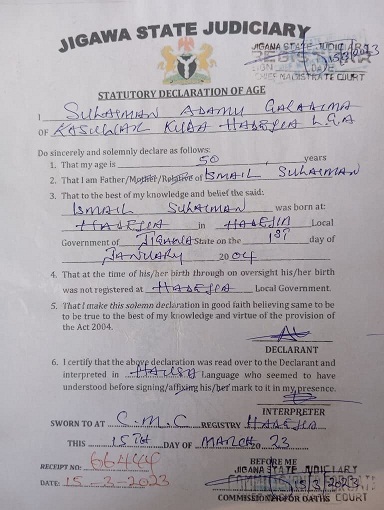 JIGAWA STATE JUDICIARY
JIGAWA STATE JUDICIARY
REGISTRAR
15/3/2023
SIGN DATE
CHIEF MAGISTRATE COURT
STATUTORY DECLARATION OF AGE
I Sulaiman Adamu Galadima
OF Kasuwar Kuda Hadejia L.G.A
Do sincerely and solemnly declare as follows:
1. That my age is 50 years
2. That I am Father/Mother/Relative of Ismail Sulaiman
3. That to the best of my knowledge and belief the said:
Ismail Sulaiman was born at:
Hadejia in Hadejia Local
Government of Jigawa State on the 1st day of
January 2004
4. That at the time of his/her birth through on oversight his/her birth
was not registered at Hadejia Local Government.
5. That I make this solemn declaration in good faith believing same to be
to be true to the best of my knowledge and virtue of the provision of
the Act 2004.
DECLARANT
6. I certify that the above declaration was read over to the Declarant and
interpreted in Hausa Language who seemed to have
understood before signing/affixing his/her mark to it in my presence.
INTERPRETER
SWORN TO AT C.M.C REGISTRY Hadejia
THIS 15th DAY OF March 2023
RECEIPT NO: 66444
BEFORE ME
JIGAWA STATE JUDICIARY
DATE: 15-3-2023
15/3/2023
COMMISSIONER FOR OATHS
COURT